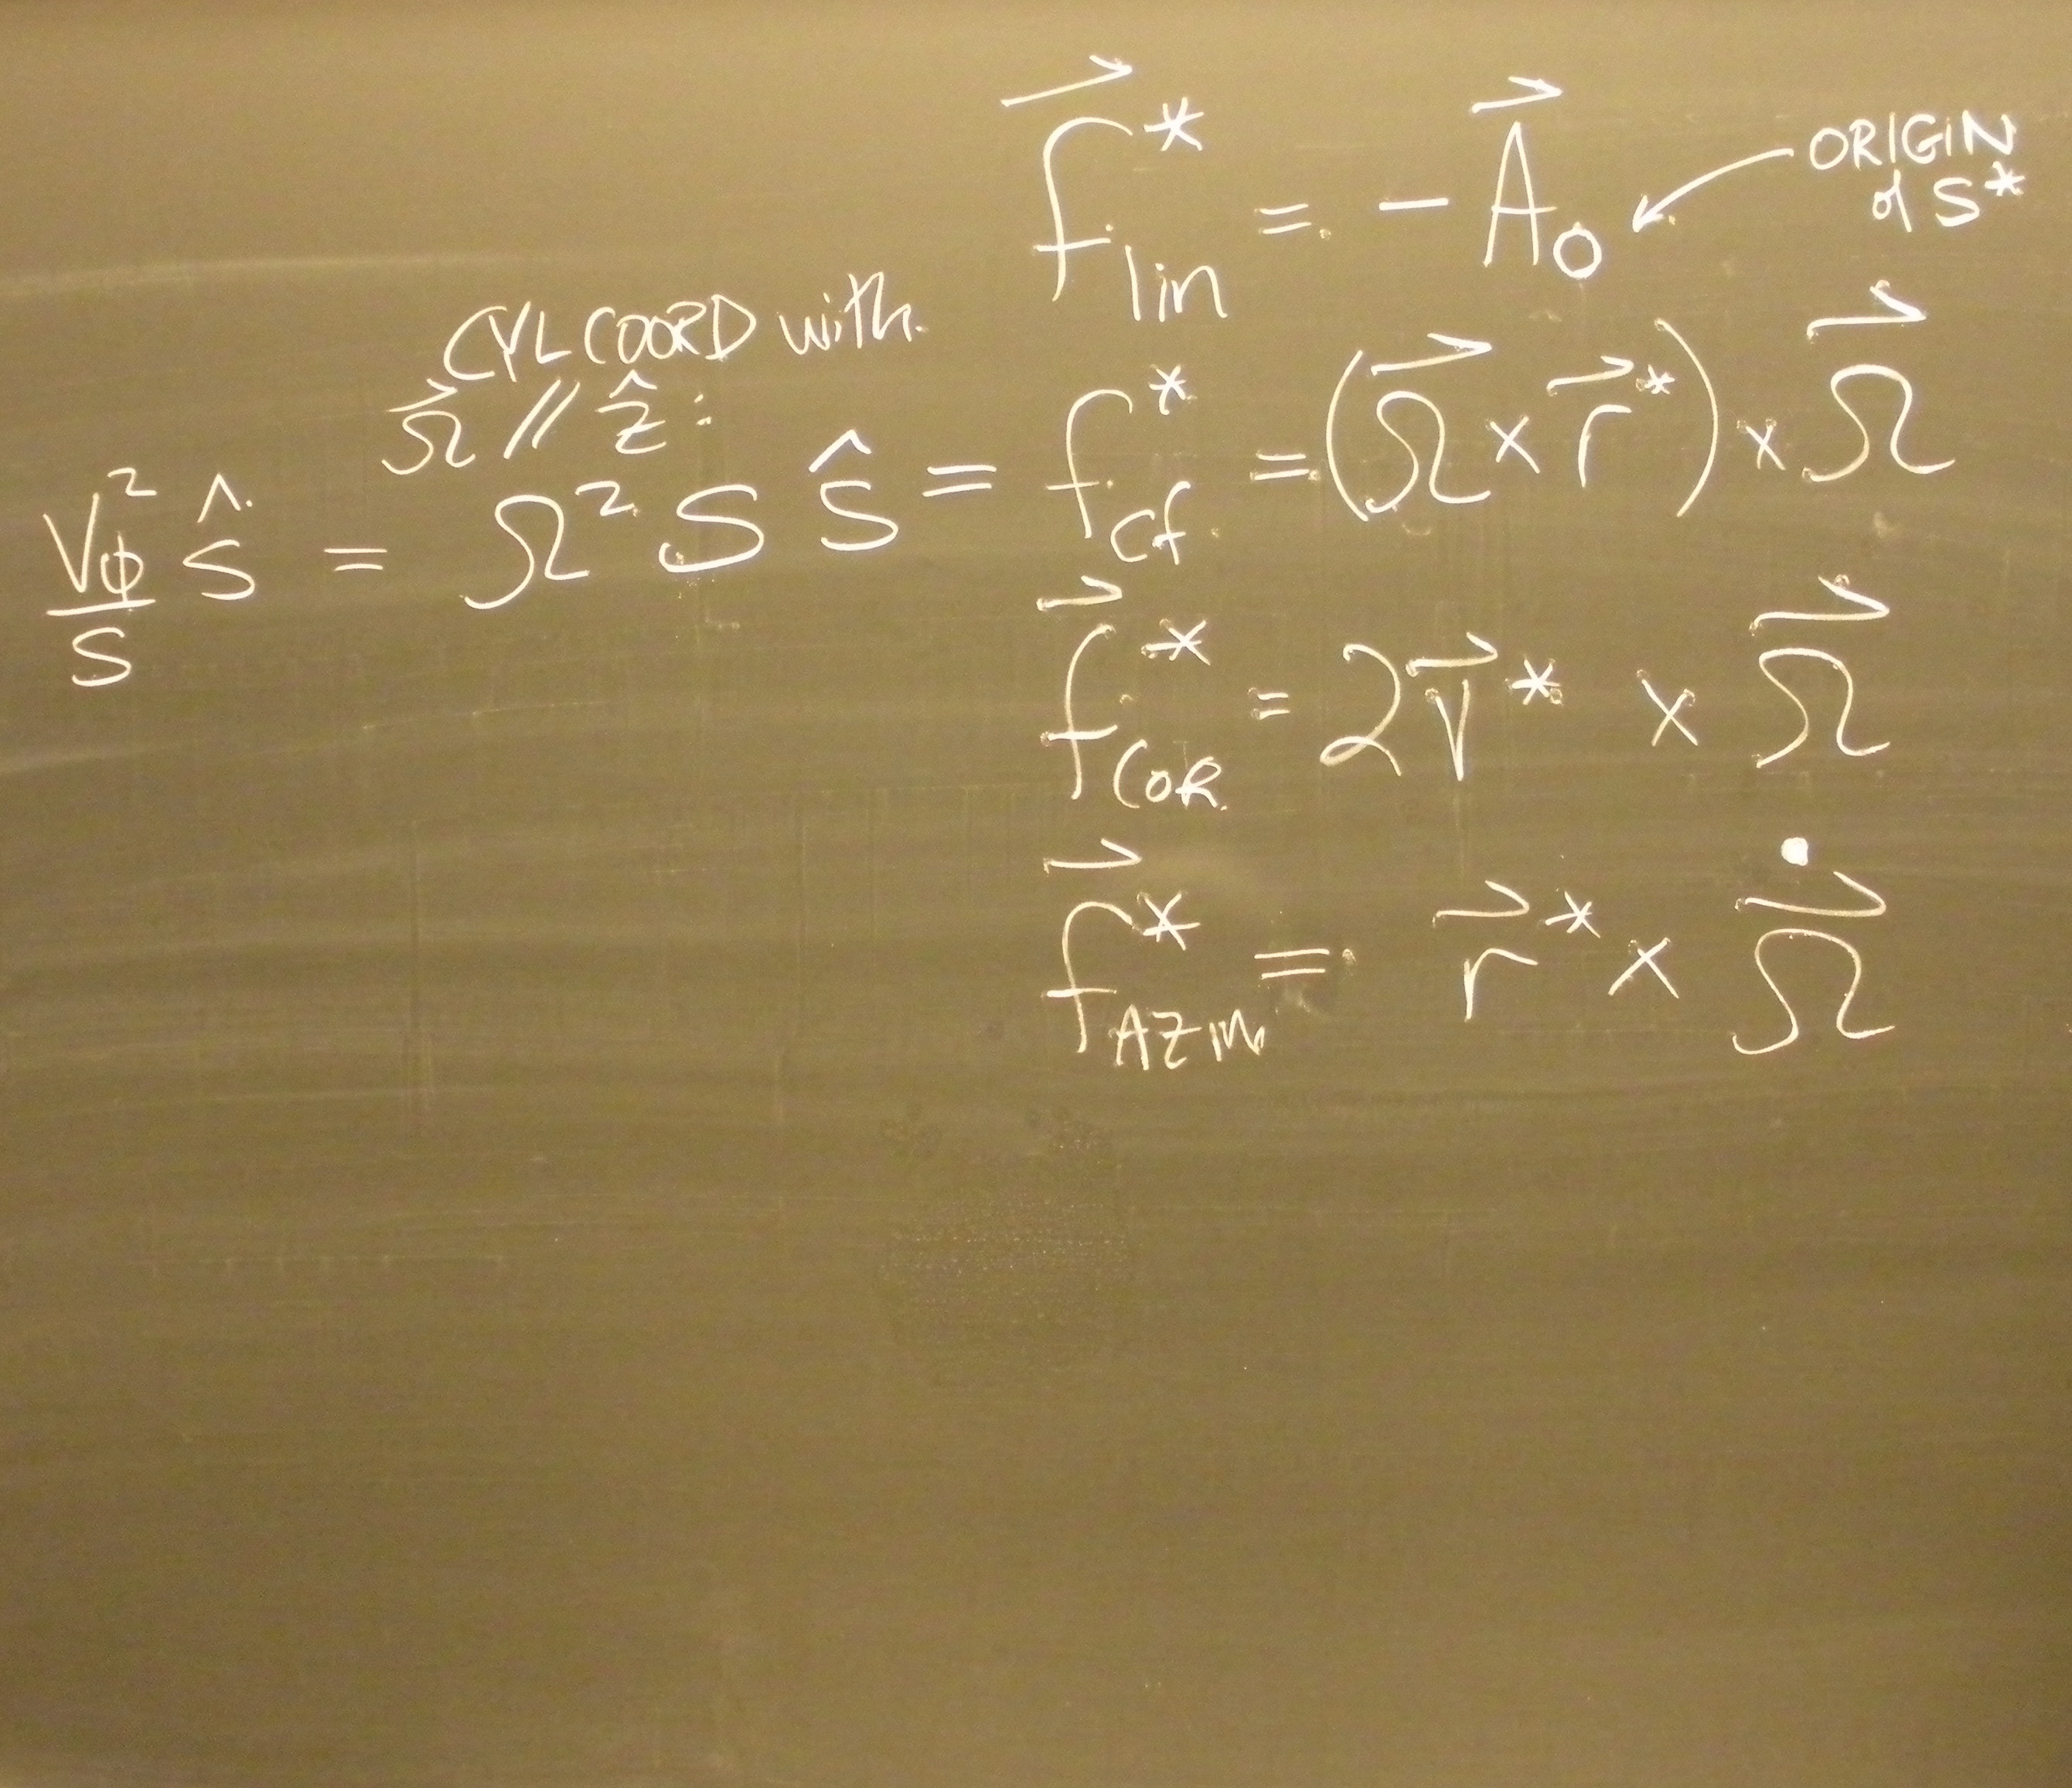 $\vec{f}^*_{lin} = -\vec{A}_0$ ↙ ORIGIN
of S*
CYL COORD with
$\vec{\Omega} // \hat{z}:$
$\frac{V_\phi^2}{s} \hat{s} = \Omega^2 s \hat{s} = f^*_{cf} = (\vec{\Omega} \times \vec{r}^*) \times \vec{\Omega}$
$\vec{f}^*_{COR} = 2\vec{v}^* \times \vec{\Omega}$
$\vec{f}^*_{AZIM} = \vec{r}^* \times \dot{\vec{\Omega}}$